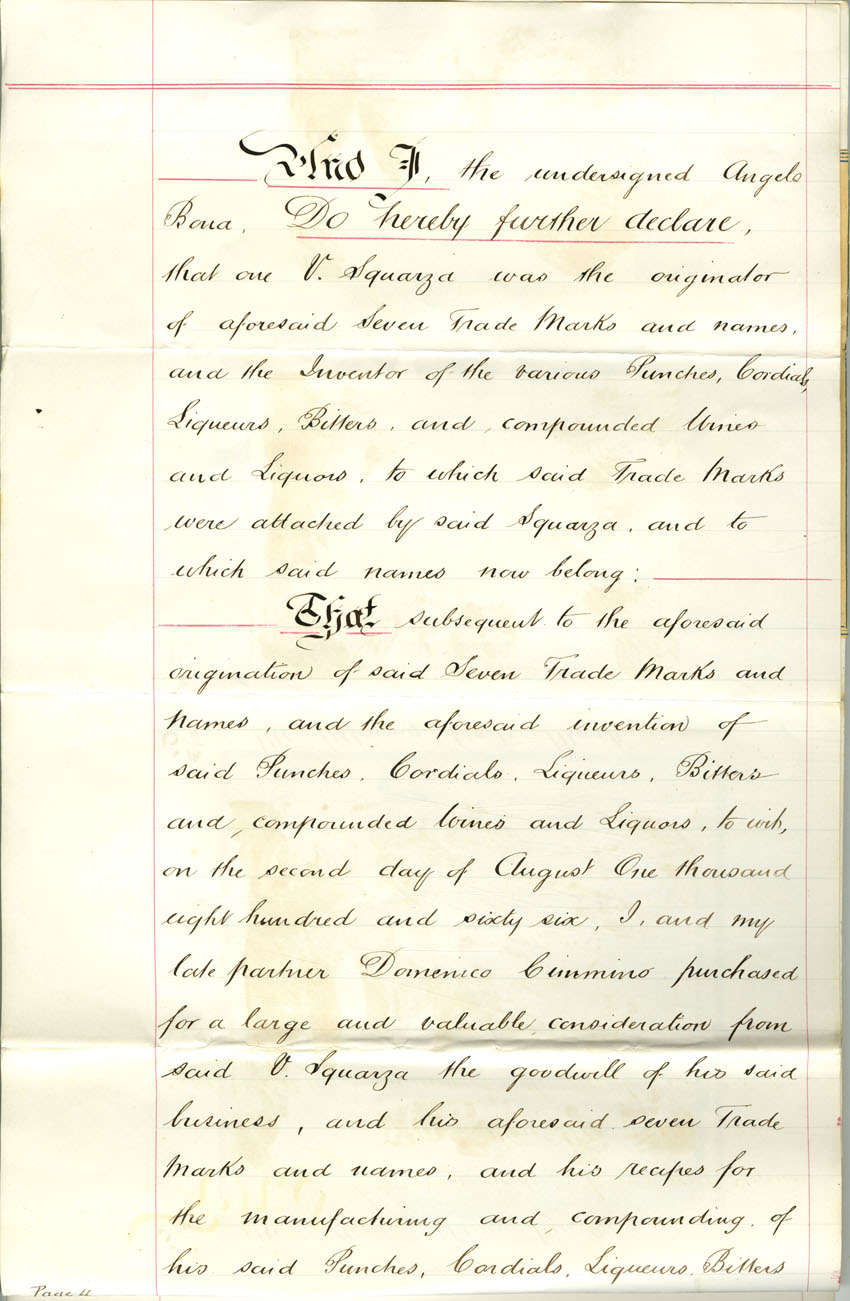 And I, the undersigned Angelo
Bona, Do hereby further declare,
that one V. Squarza was the originator
of aforesaid Seven Trade Marks and names,
and the Inventor of the various Punches, Cordials,
Liqueurs, Bitters, and, compounded Wines
and Liquors, to which said Trade Marks
were attached by said Squarza, and to
which said names now belong:
That subsequent to the aforesaid
origination of said Seven Trade Marks and
names, and the aforesaid invention of
said Punches, Cordials, Liqueurs, Bitters
and, compounded Wines and Liquors, to wit,
on the second day of August One thousand
eight hundred and sixty six, I, and my
late partner Domenico Cimmino purchased
for a large and valuable consideration from
said V. Squarza the goodwill of his said
business, and his aforesaid seven Trade
Marks and names, and his recipes for
the manufacturing and compounding of
his said Punches, Cordials, Liqueurs, Bitters
Page 4